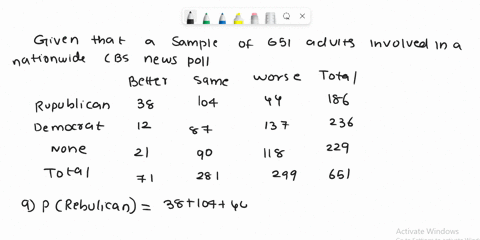 Given that a sample of 651 adults involved in a
nationwide CBS news poll
Better same worse Total
Rupublican 38 104 44 186
Democrat 12 87 137 236
None 21 90 118 229
Total 71 281 299 651
a) P (Rebulican) = 38+104+44
Activate Windows